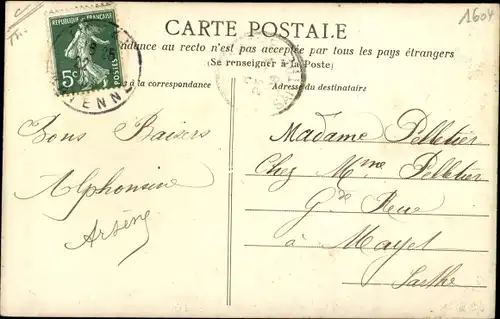 1604
CARTE POSTALE
REPUBLIQUE FRANÇAISE
5c
POSTES
ENNE
ndance au recto n'est pas acceptée par tous les pays étrangers
(Se renseigner à la Poste)
à la correspondance
Adresse du destinataire
Bons Baisers
Alphonsine
Arsène
Madame Pelletier
Chez Mme Pelletier
Gde Rue
à Mayet
Sarthe